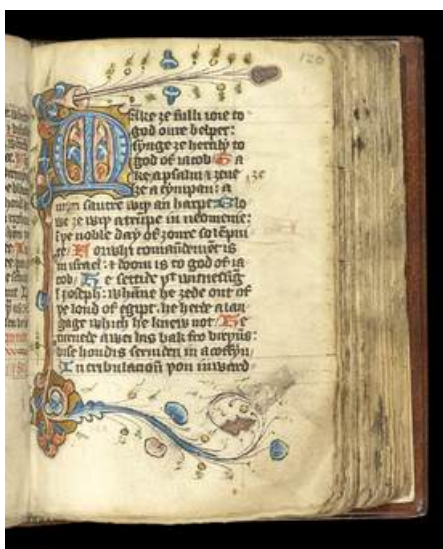 120
Make ȝe fulli ioie to
god oure helper:
synge ȝe hertli to
god of iacob Ta
ke a psalm ⁊ ȝeue ȝe
ȝe a tympan: a
myri sautre wiþ an harpe Blo
we ȝe wiþ a trumpe in neomenie:
i þe noble day of ȝoure solempni
te For whi comaundement is
in israel: ⁊ doom is to god of ia
cob He settide þt witnessing
i ioseph: whanne he ȝede out of
þe lond of egipt. he herde a lan
gage which he knew not He
turnede awei his bak fro birþyns:
hise hondis serueden in a coffyn
In tribulacion þou inward